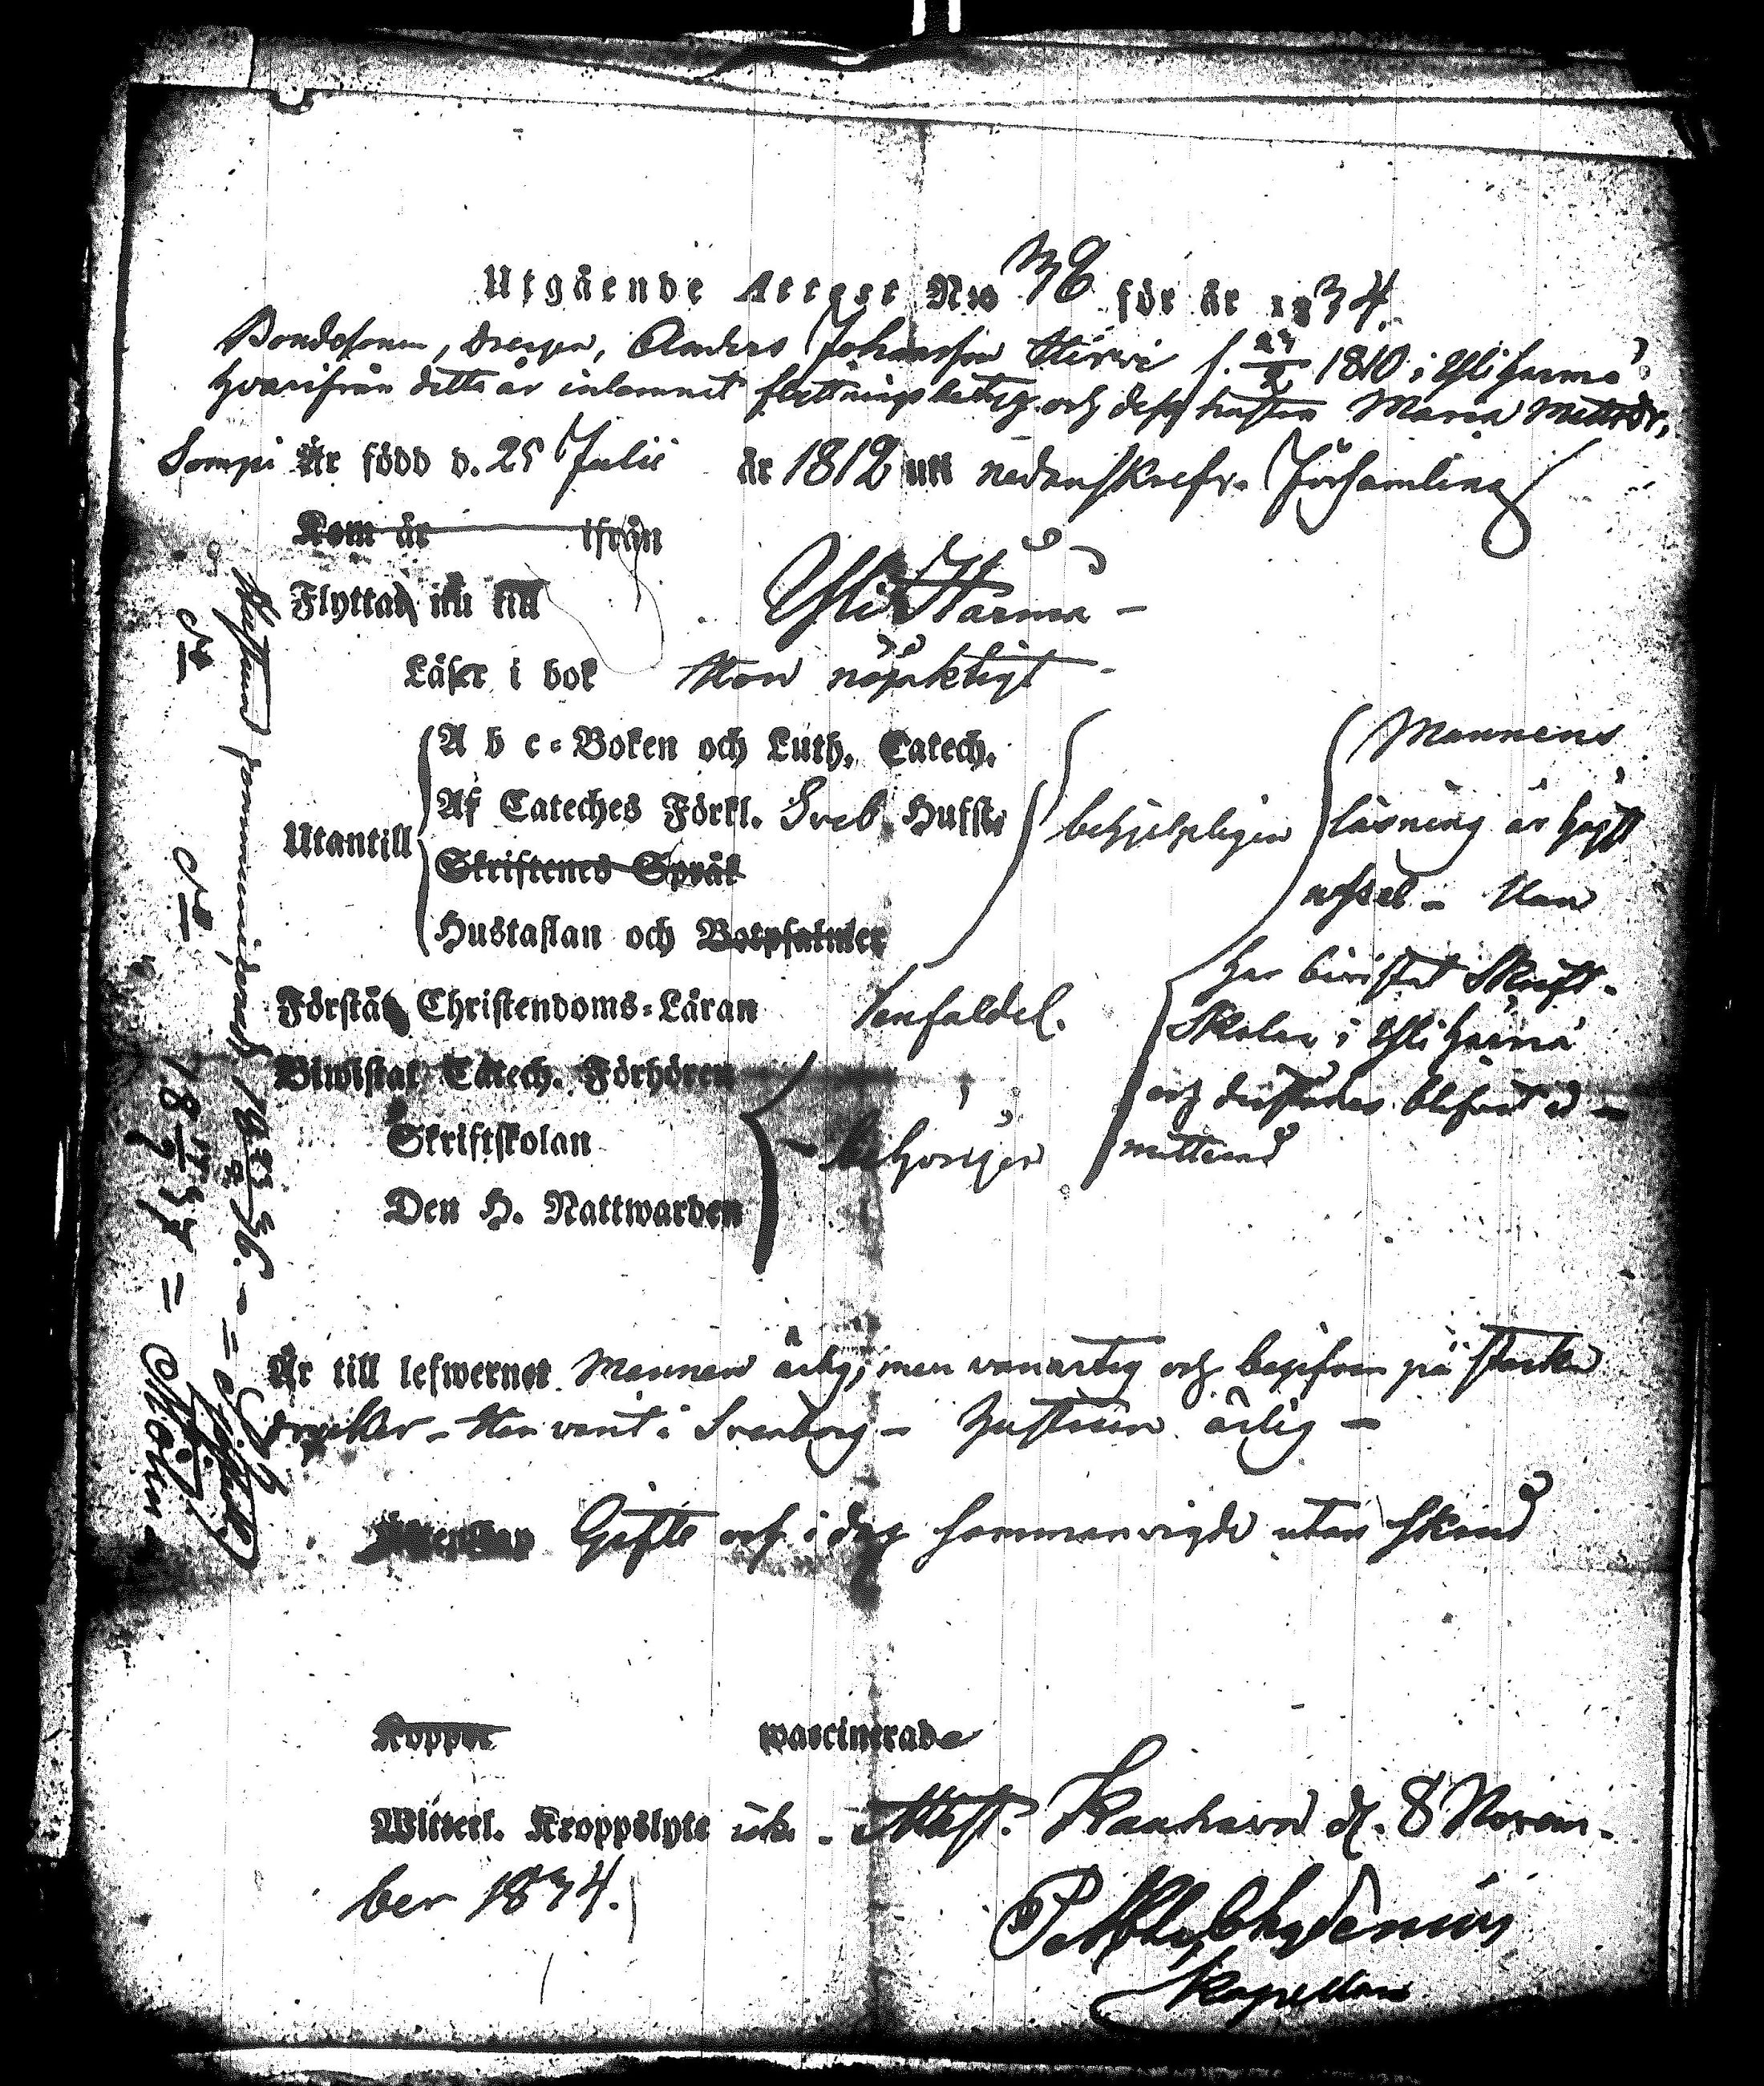 Utgående Attest N:o 38 för år 1834.
Bondesonen, drengen, Anders Johansson Hirvi f. 1810 i Ylihärmä
hvarifrån detta år inlemnat flyttningsbetyg och dess hustru Maria Mattsdr,
Sompi Är född d. 25 Julii år 1812 uti nedanskrefr. Församling
Kom år ifrån
Flyttad nu till Yli Härmä -
Läser i bok Hon nöjaktigt -
A b c-Boken och Luth. Catech.
Af Cateches Förkl. Sveb. Hufst:
Utantill
Skriftenes Språk
Hustaflan och Botpsalmer
behjelpligen
Mannens
läsning är högst
usel - Han
har bivistat Skrift-
Skolan i Yli Härmä
och blifvit ad-
mitterad
Förstår Christendoms-Läran enfaldel.
Biwistat Catech. Förhören
Skriftskolan
Den H. Nattwarden
- behörigen
Är till lefwernet Mannen ärlig, men vanartig och begifven på starka
drycker - Han varit i Sveaborg - Hustrun ärlig -
Gifte och i dag sammanvigde utan skrud
Koppor waccinerade
Witterl. Kroppslyte icke - Attest. Kauhava d. 8 Novem-
ber 1834.
Chydenius
Kapellan
Hustrun 1836. -
1837 =